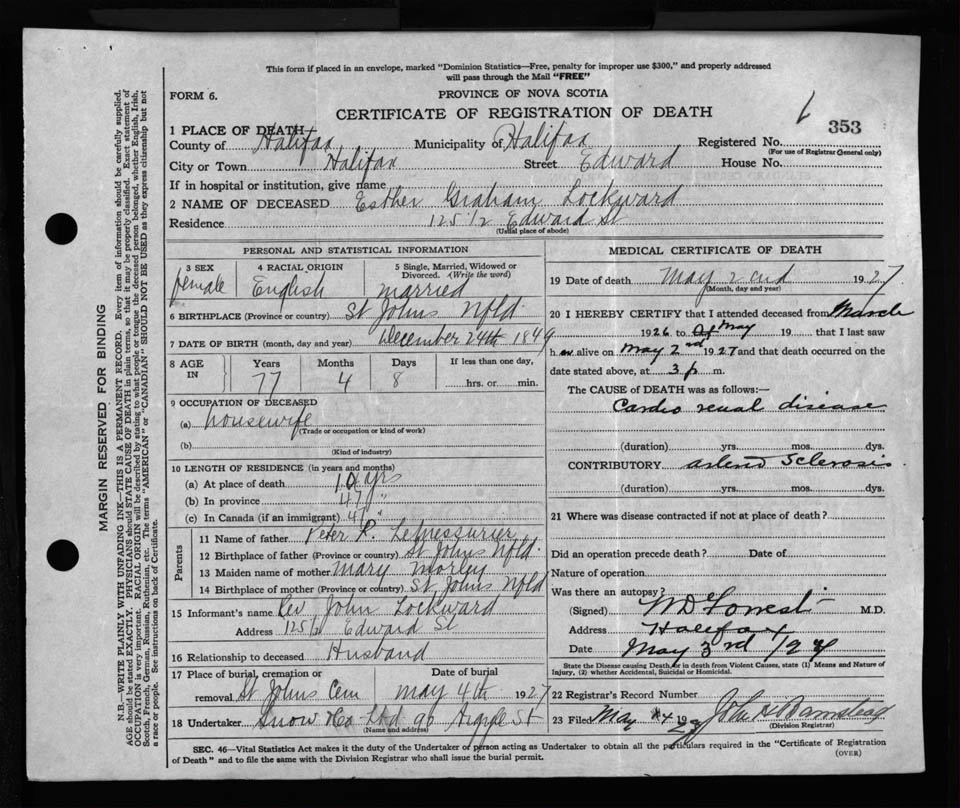 This form if placed in an envelope, marked "Dominion Statistics—Free, penalty for improper use $300," and properly addressed
will pass through the Mail "FREE"
FORM 6.
PROVINCE OF NOVA SCOTIA
CERTIFICATE OF REGISTRATION OF DEATH
353
1 PLACE OF DEATH
County of Halifax Municipality of Halifax Registered No.
(For use of Registrar General only)
City or Town Halifax Street Edward House No.
If in hospital or institution, give name
2 NAME OF DECEASED Esther Graham Lockward
Residence 125 1/2 Edward St
(Usual place of abode)
PERSONAL AND STATISTICAL INFORMATION
3 SEX female
4 RACIAL ORIGIN English
5 Single, Married, Widowed or Divorced. (Write the word) married
6 BIRTHPLACE (Province or country) St Johns Nfld
7 DATE OF BIRTH (month, day and year) December 24th 1849
8 AGE IN Years 77 Months 4 Days 8 If less than one day, hrs. or min.
9 OCCUPATION OF DECEASED
(a) housewife
(Trade or occupation or kind of work)
(b)
(Kind of industry)
10 LENGTH OF RESIDENCE (in years and months)
(a) At place of death yrs
(b) In province 47 "
(c) In Canada (if an immigrant) 47 "
Parents
11 Name of father Peter Lemessurier
12 Birthplace of father (Province or country) St Johns Nfld.
13 Maiden name of mother Mary Morley
14 Birthplace of mother (Province or country) St Johns Nfld
15 Informant's name Rev John Lockward
Address 125 1/2 Edward St
16 Relationship to deceased Husband
17 Place of burial, cremation or removal St Johns Cem Date of burial May 4th 1927
18 Undertaker Snow & Co Ltd 90 Argyle St
(Name and address)
MEDICAL CERTIFICATE OF DEATH
19 Date of death May 2nd 1927
(Month, day and year)
20 I HEREBY CERTIFY that I attended deceased from March
1926 to May 19 that I last saw
h er alive on May 2nd 1927 and that death occurred on the
date stated above, at 3 p m.
The CAUSE of DEATH was as follows:—
Cardio renal disease
(duration) yrs. mos. dys.
CONTRIBUTORY Sclerosis
(duration) yrs. mos. dys.
21 Where was disease contracted if not at place of death?
Did an operation precede death? Date of
Nature of operation
Was there an autopsy?
(Signed) WD Forrest M.D.
Address Halifax
Date May 3rd /27
State the Disease causing Death, or in death from Violent Causes, state (1) Means and Nature of Injury, (2) whether Accidental, Suicidal or Homicidal.
22 Registrar's Record Number
23 Filed May 4 1927 John
(Division Registrar)
SEC. 46—Vital Statistics Act makes it the duty of the Undertaker or person acting as Undertaker to obtain all the particulars required in the "Certificate of Registration
of Death" and to file the same with the Division Registrar who shall issue the burial permit.
(OVER)
MARGIN RESERVED FOR BINDING
N.B.—WRITE PLAINLY WITH UNFADING INK—THIS IS A PERMANENT RECORD. Every item of information should be carefully supplied.
AGE should be stated EXACTLY. PHYSICIANS should STATE CAUSE OF DEATH in plain terms, so that it may be properly classified. Exact statement of
OCCUPATION is very important. RACIAL ORIGIN will be described by stating to what people or tongue the deceased person belonged, whether English, Irish,
Scotch, French, German, Russian, Ruthenian, etc. The terms "AMERICAN" or "CANADIAN" SHOULD NOT BE USED as they express citizenship but not
a race or people. See instructions on back of Certificate.